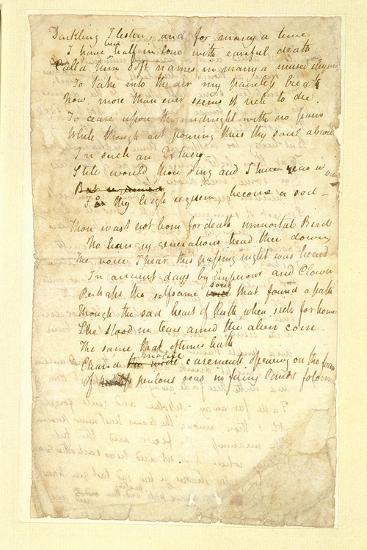 Darkling I listen, and for many a time
I have been half in love with easeful death
Call'd him soft names in many a mused rhyme
To take into the air my painless breath
Now more than ever seems it rich to die
To cease upon the midnight with no pain
While thou art pouring thus thy soul abroad
In such an Extacy
Still would thou sing and I have ears in vain
For thy high requiem become a sod
Thou wast not born for death immortal Bird
No hungry generations tread thee down
The voice I hear this passing night was heard
In ancient days by Emperour and Clown
Perhaps the selfsame song that found a path
Through the sad heart of Ruth when sick for home
She stood in tears amid the alien corn
The same that oftimes hath
Charm'd magic casements opening on the foam
Of perilous seas in fairy lands forlorn